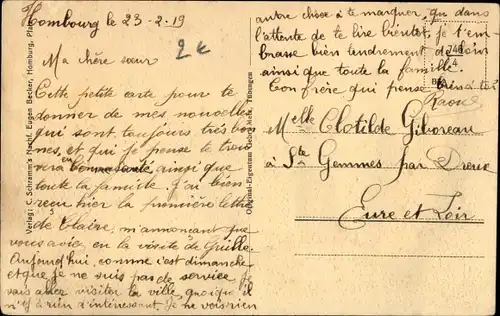 Hombourg le 23-2-19
2€
Ma chère sœur
Cette petite carte pour te
donner de mes nouvelles
qui sont toujours très bon
nes, et qui je pense te trou
vera en bonne santé ainsi que
toute la famille. J'ai bien
reçu hier la première lettre
de Claire, m'annonçant que
vous avez eu la visite de
Aujourd'hui, comme c'est dimanche
et que je ne suis pas de service je
vais aller visiter la ville quoiqu'il
n'y a rien d'intéressant. Je ne vois rien
autre chose à te marquer, qui dans
l'attente de te lire bientôt, je t'em
brasse bien tendrement de loin
ainsi que toute la famille.
Ton frère qui pense bien à toi
Raoul
Verlag: C. Schramm's Nachf. Eugen Becker, Homburg, Pfalz
Original-Eigentum Gebr. Metz, Tübingen
Melle Clotilde Giboreau
à Ste Gemmes par Dreux
Eure et Loir